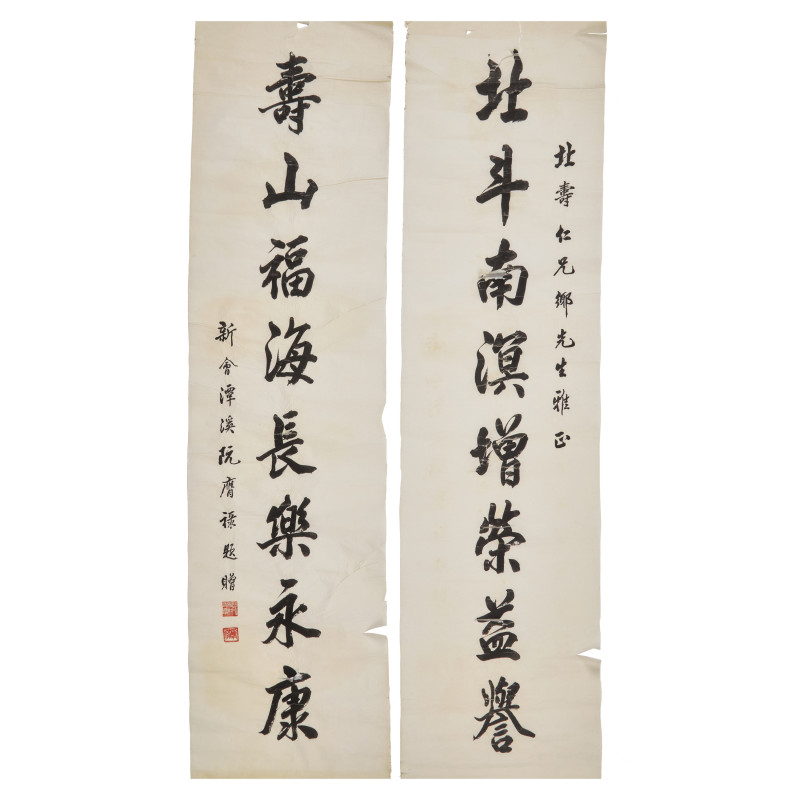 北壽仁兄鄉先生雅正
北斗南溟增榮益譽
壽山福海長樂永康
新會潭溪阮膺祿題贈